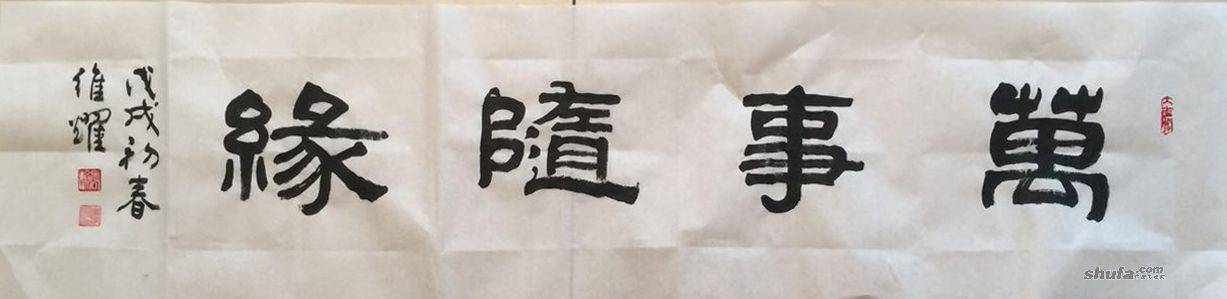 萬事隨緣
戊戌初春
維耀
shufa.com